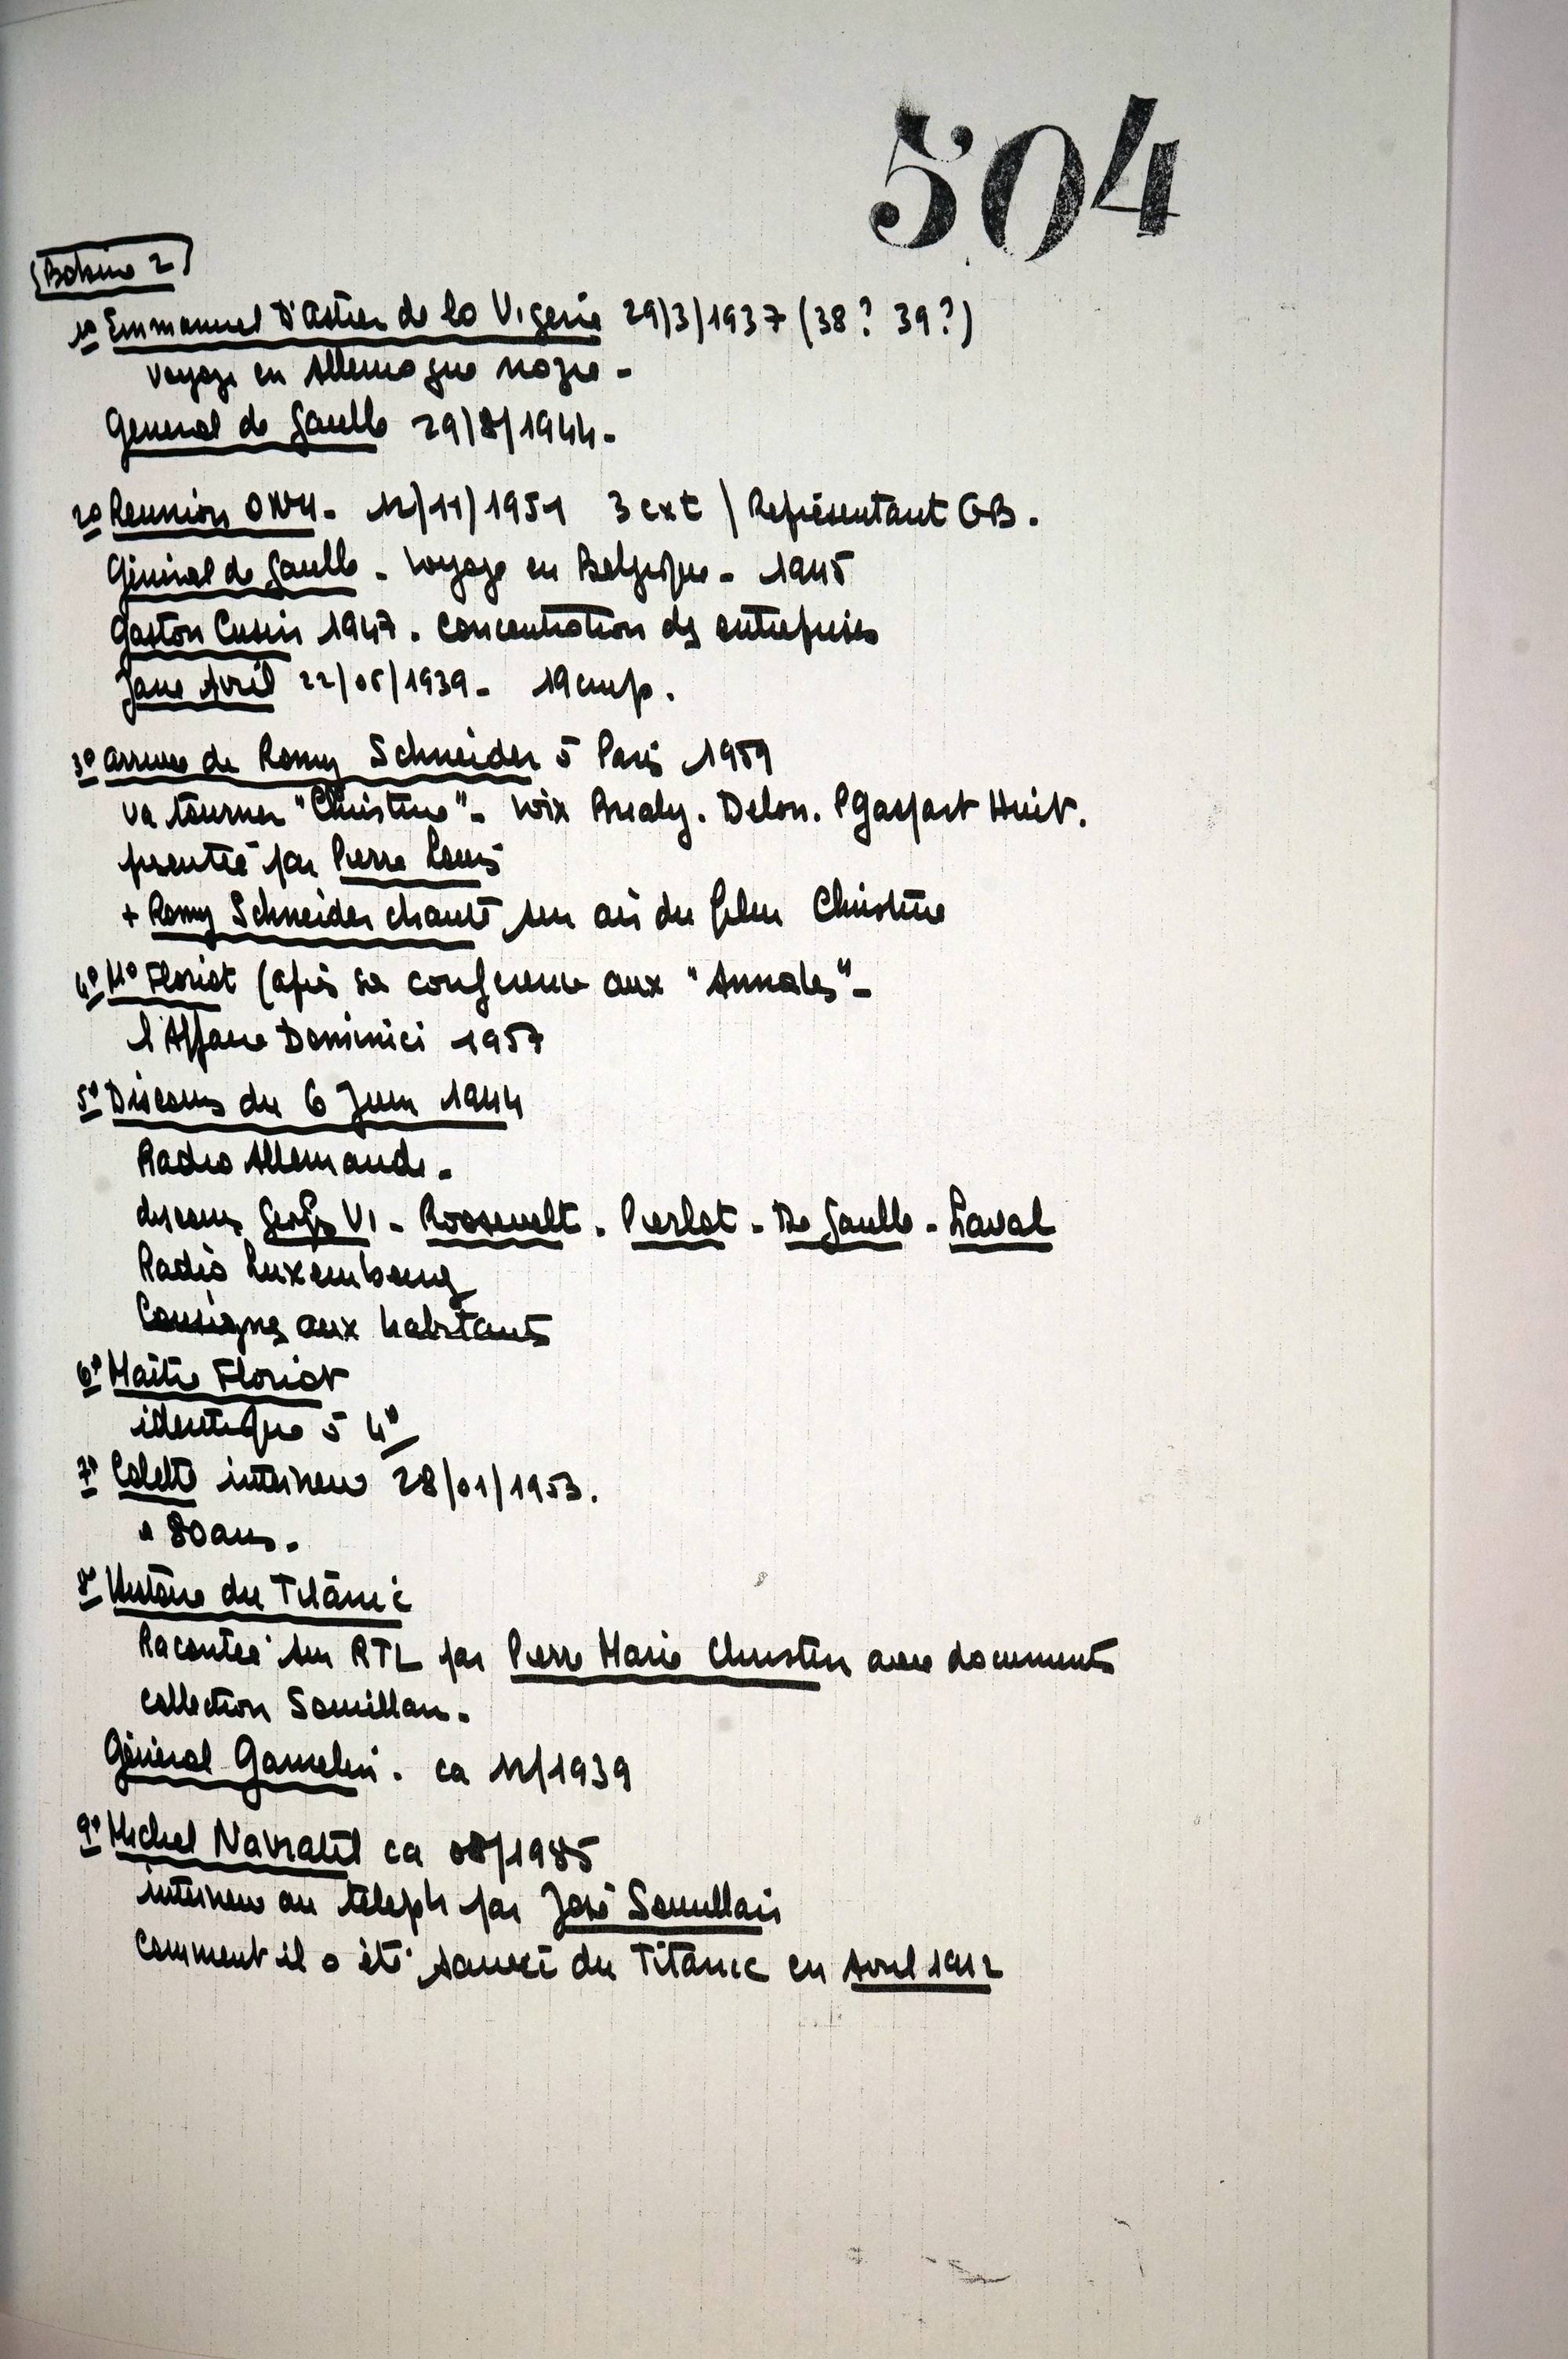 504
Bobine 2
1° Emmanuel D'Astier de la Vigerie 29/3/1937 (38? 39?)
voyage en Allemagne nazie -
General de Gaulle 29/8/1944 -
2° Reunion ONU - 12/11/1951 3 ext / Représentant GB.
Général de Gaulle - voyage en Belgique - 1945
Gaston Cusin 1947. Concentration des entreprises
Jane Avril 22/05/1939 -
3° arrivée de Romy Schneider à Paris 1959
va tourner "Christine" - voix Brialy. Delon. P Gaspart Huit.
presenté par Pierre Louis
+ Romy Schneider chante sur air du film Christine
4° M° Floriot (après sa conference aux "Annales" -
l'Affaire Dominici 1957
5° Discours du 6 Juin 1944
Radio Allemande -
discours Georges VI - Roosevelt - Pierlot - De Gaulle - Laval
Radio Luxembourg
Consignes aux habitants
6° Maître Floriot
identique à 4°
7° Colette interview 28/01/1953.
80 ans.
8° Histoire du Titanic
Racontée sur RTL par Pierre Marie Christin avec documents
collection Souvillan.
Général Gamelin. ca 12/1939
9° Michel Navratil ca 08/1985
interview au téleph par José
comment il a été sauvé du Titanic en Avril 1912